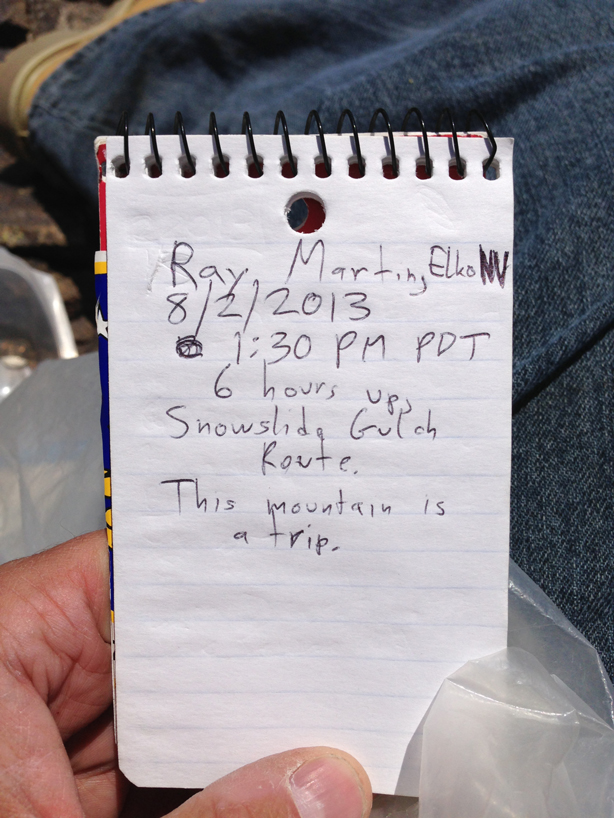 Ray Martin, Elko NV
8/2/2013
1:30 PM PDT
6 hours up,
Snowslide Gulch
Route.
This mountain is
a trip.